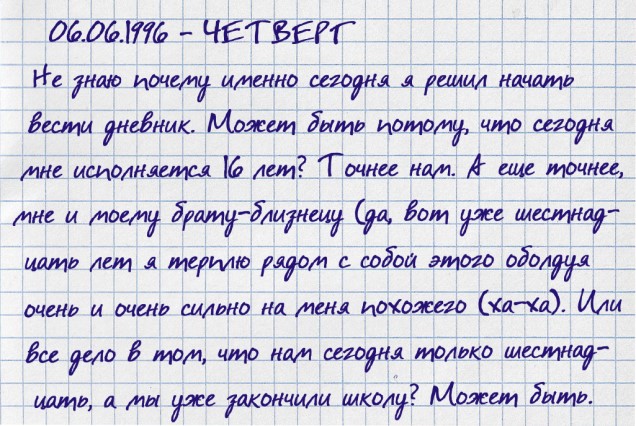 06.06.1996 - ЧЕТВЕРГ
Не знаю почему именно сегодня я решил начать
вести дневник. Может быть потому, что сегодня
мне исполняется 16 лет? Точнее нам. А еще точнее,
мне и моему брату-близнецу (да, вот уже шестнад-
цать лет я терплю рядом с собой этого оболдуя
очень и очень сильно на меня похожего (ха-ха). Или
все дело в том, что нам сегодня только шестнад-
цать, а мы уже закончили школу? Может быть.